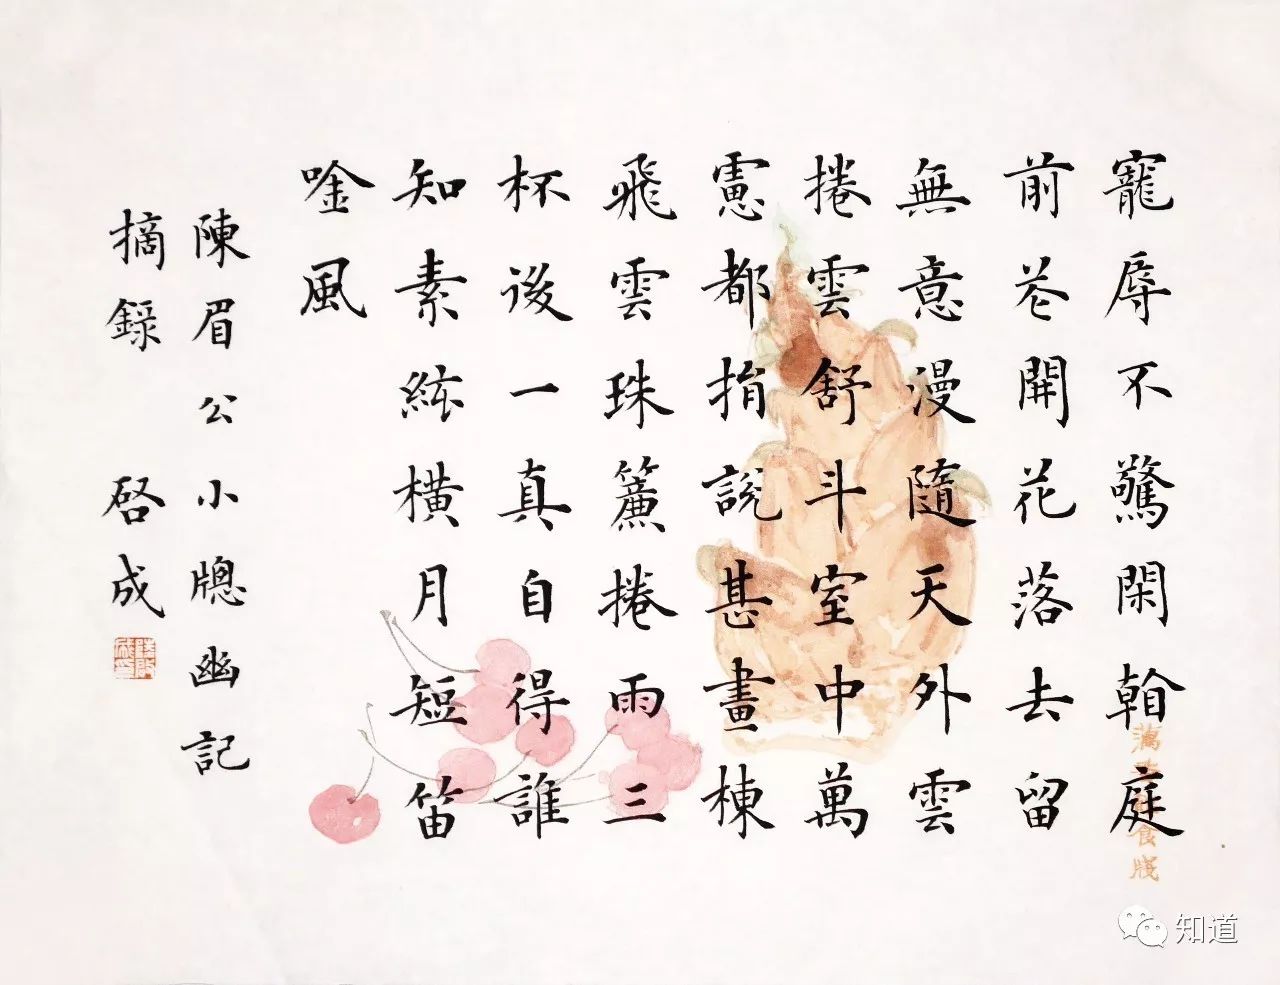 寵辱不驚閑看庭
前花開花落去留
無意漫隨天外雲
捲雲舒斗室中萬
慮都捐說甚畫棟
飛雲珠簾捲雨三
杯後一真自得誰
知素絃橫月短笛
唫風
陳眉公小牕幽記
摘錄 啓成
食牋
知道